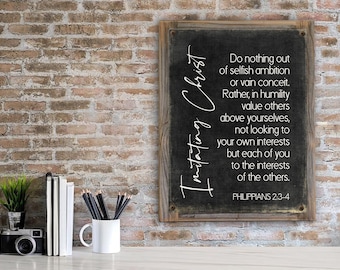 Imitating Christ
Do nothing out
of selfish ambition
or vain conceit.
Rather, in humility
value others
above yourselves,
not looking to
your own interests
but each of you
to the interests
of the others.
PHILIPPIANS 2:3-4